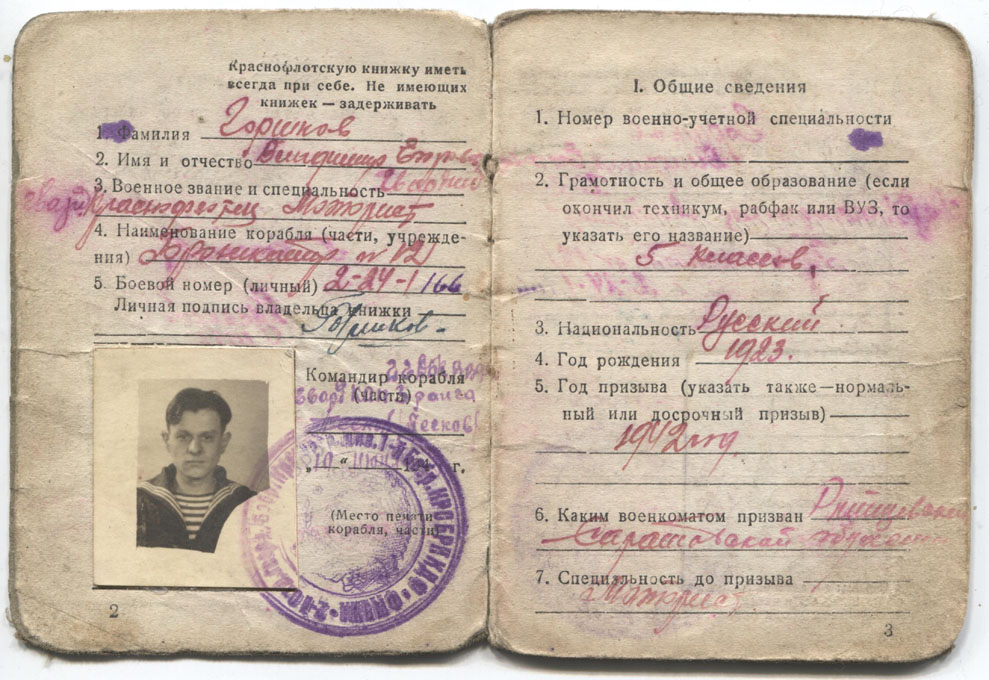 Краснофлотскую книжку иметь
всегда при себе. Не имеющих
книжек — задерживать
1. Фамилия Горшков
2. Имя и отчество Владимир
3. Военное звание и специальность Гвардии
Краснофлотец Моторист
4. Наименование корабля (части, учрежде-
ния) Бронекатер №12
5. Боевой номер (личный) 2-24-1 166
Личная подпись владельца книжки
Горшков
Командир корабля
(части)
Песков
г.
(Место печати
корабля, части)
2
I. Общие сведения
1. Номер военно-учетной специальности
2. Грамотность и общее образование (если
окончил техникум, рабфак или ВУЗ, то
указать его название)
5 классов
3. Национальность Русский
4. Год рождения 1923.
5. Год призыва (указать также—нормаль-
ный или досрочный призыв)
1942 год
6. Каким военкоматом призван
Саратовской
7. Специальность до призыва
Моторист
3